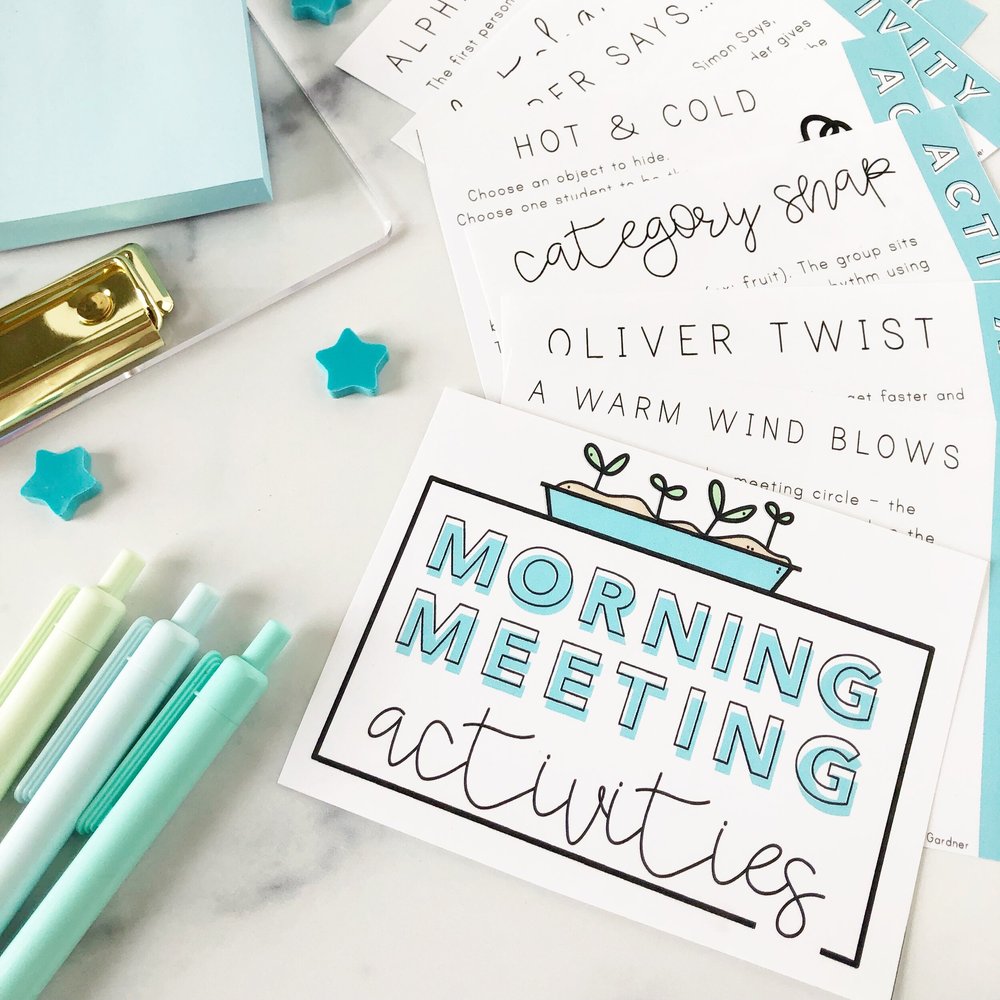 ALPH
The first person
DER SAYS...
Simon Says,
der gives
he
HOT & COLD
Choose an object to hide.
Choose one student to be th
category snap
(ex: fruit). The group sits
rhythm using
OLIVER TWIST
get faster and
A WARM WIND BLOWS
meeting circle – the
the
MORNING
MEETING
activities
Gardner
IVITY
ACTI
AC
ACTI